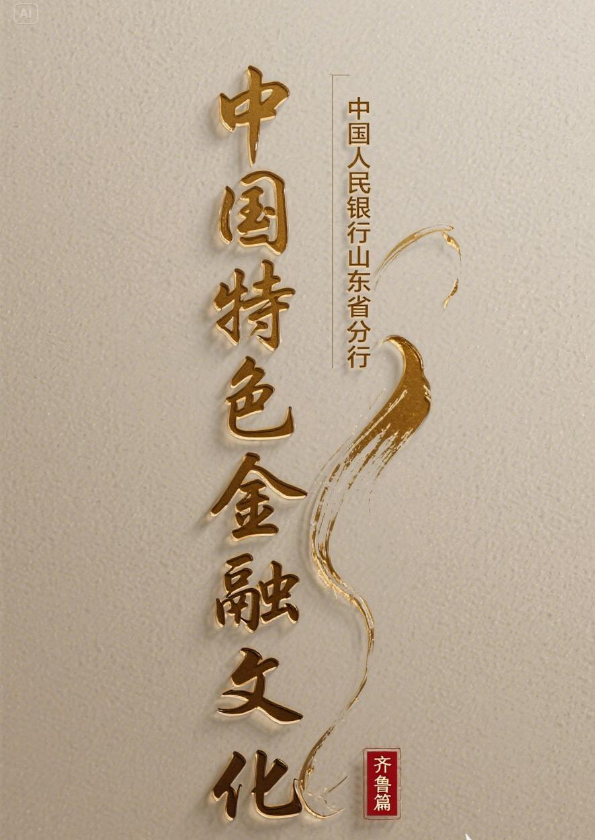 中国人民银行山东省分行
中国特色金融文化
齐鲁篇
AI